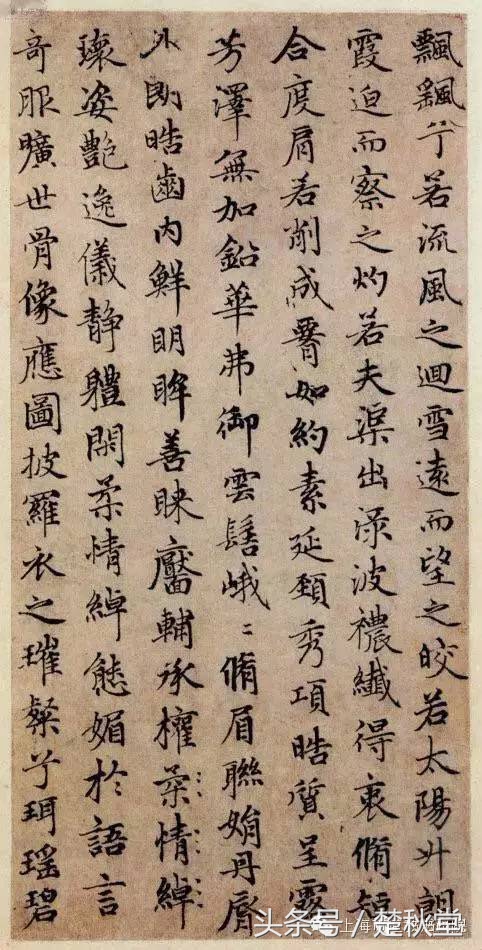 飄飖兮若流風之迴雪遠而望之皎若太陽升朝
霞迫而察之灼若夫渠出淥波襛纖得衷脩短
合度肩若削成䙅如約素延頸秀項皓質呈露
芳澤無加鉛華弗御雲髻峨〻脩眉聯娟丹脣
外朗皓齒內鮮明眸善睞靨輔承權柔情綽
瓌姿艷逸儀靜體閑柔情綽態媚於語言
奇服曠世骨像應圖披羅衣之璀粲兮珥瑤碧
上海
头条号 / 楚秋堂